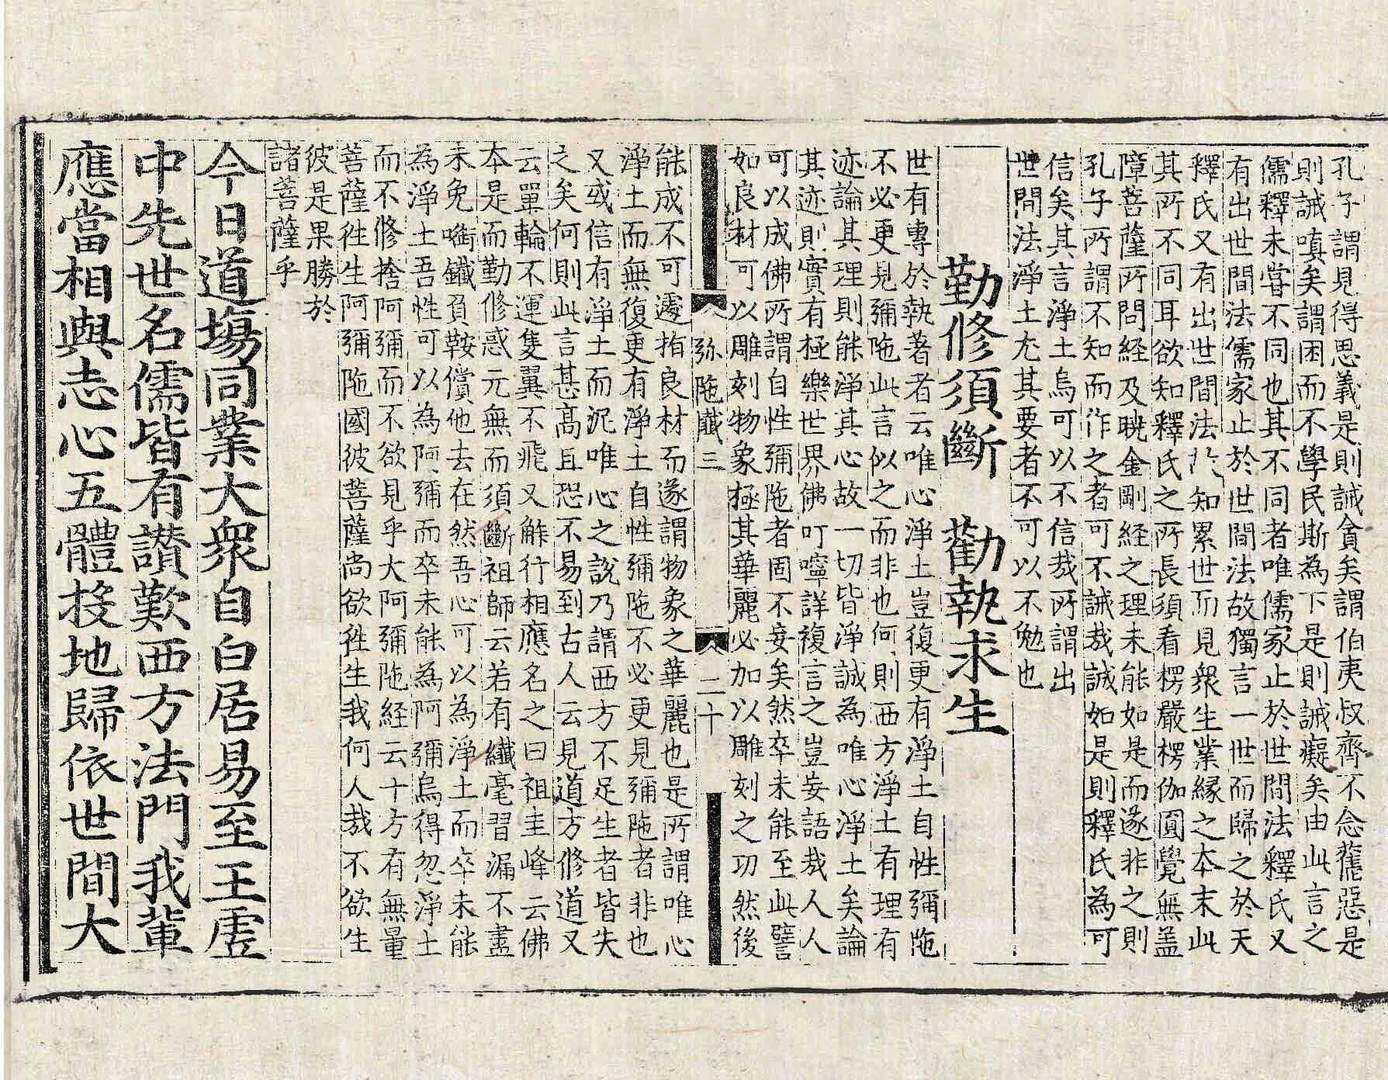 孔子謂見得思義是則誡貪矣謂伯夷叔齊不念舊惡是
則誡嗔矣謂困而不學民斯為下是則誡癡矣由此言之
儒釋未甞不同也其不同者唯儒家止於世間法釋氏又
有出世間法儒家止於世間法故獨言一世而歸之於天
釋氏又有出世間法於知累世而見衆生業緣之本末此
其所不同耳欲知釋氏之所長須看楞嚴楞伽圓覺無盖
障菩薩所問經及曉金剛經之理未能如是而遂非之則
孔子所謂不知而作之者可不誡哉誠如是則釋氏為可
信矣其言淨土烏可以不信哉所謂出
世間法淨土尤其要者不可以不勉也
勤修須斷　勸執求生
世有專於執著者云唯心淨土豈復更有淨土自性彌陁
不必更見彌陁此言似之而非也何則西方淨土有理有
迹論其理則能淨其心故一切皆淨誠為唯心淨土矣論
其迹則實有極樂世界佛叮嚀詳複言之豈妄語哉人人
可以成佛所謂自性彌陁者固不妄矣然卒未能至此譬
如良材可以雕刻物象極其華麗必加以雕刻之功然後
弥陁懴三　二十
能成不可遽指良材而遂謂物象之華麗也是所謂唯心
淨土而無復更有淨土自性彌陁不必更見彌陁者非也
又或信有淨土而泥唯心之說乃謂西方不足生者皆失
之矣何則此言甚高且恐不易到古人云見道方修道又
云單輪不運隻翼不飛又解行相應名之曰祖圭峰云佛
本是而勤修惑元無而須斷祖師云若有纖毫習漏不盡
未免啣鐵負鞍償他去在然吾心可以為淨土而卒未能
為淨土吾性可以為阿彌而卒未能為阿彌烏得忽淨土
而不修捨阿彌而不欲見乎大阿彌陁経云十方有無量
菩薩徃生阿彌陁國彼菩薩尚欲徃生我何人哉不欲生
彼是果勝於
諸菩薩乎
今日道場同業大衆自白居易至王虛
中先世名儒皆有讃歎西方法門我輩
應當相與志心五體投地歸依世間大